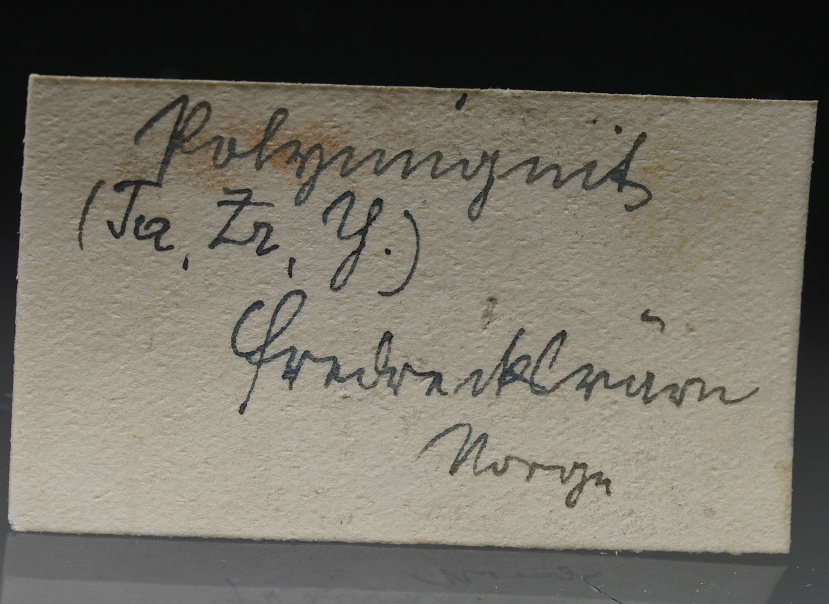 Polymignit
(Ta, Zr, Y.)
Fredrecksvärn
Norge